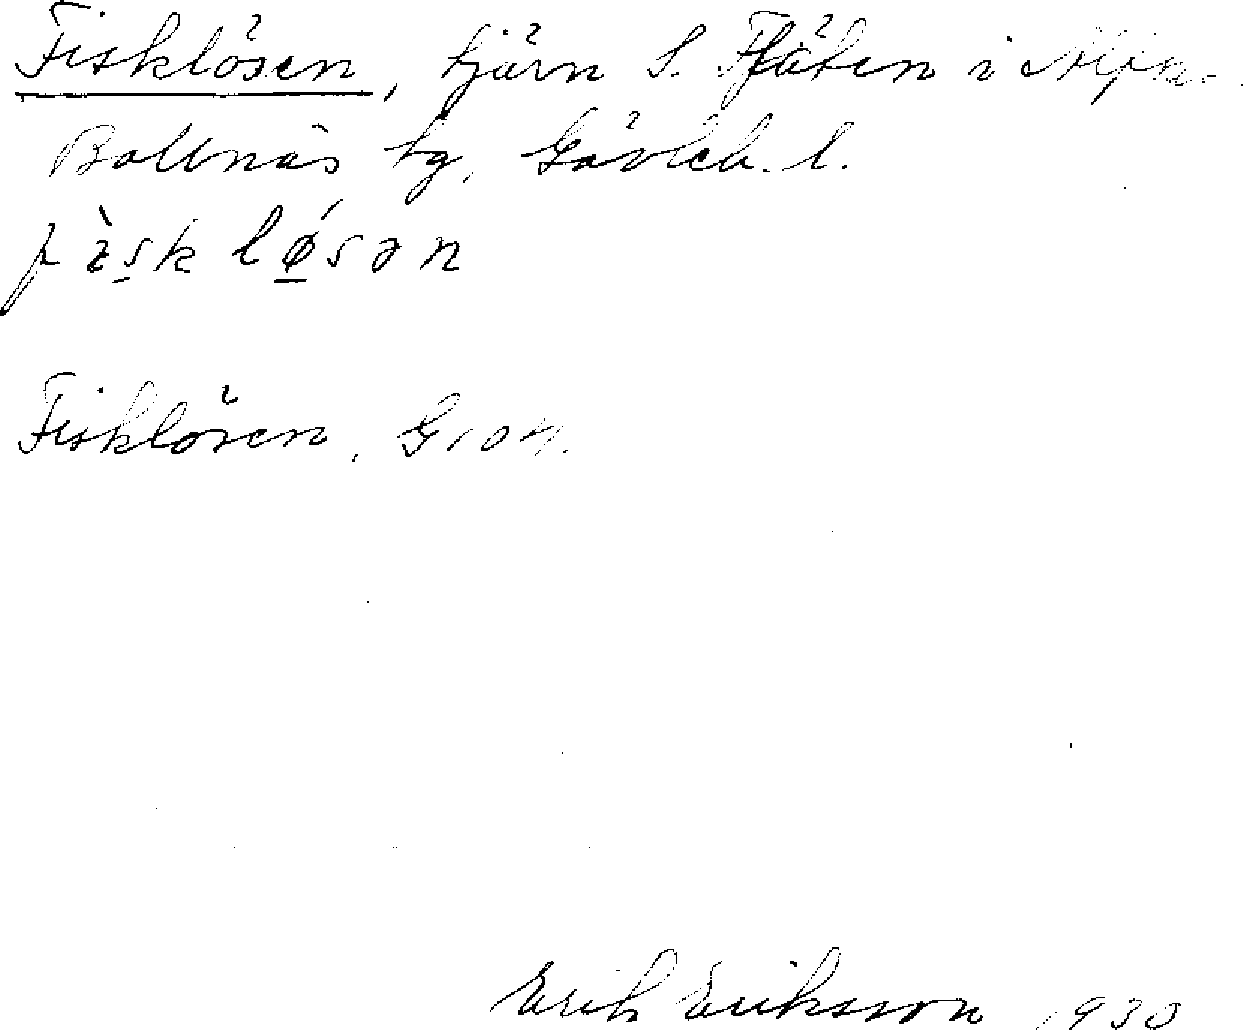 Fisklösen, tjärn S. Fjäten i
Bollnäs tg, Gävleb. l.
fı̀sk løsən
Fisklösen. G104.
Erik Eriksson 1930